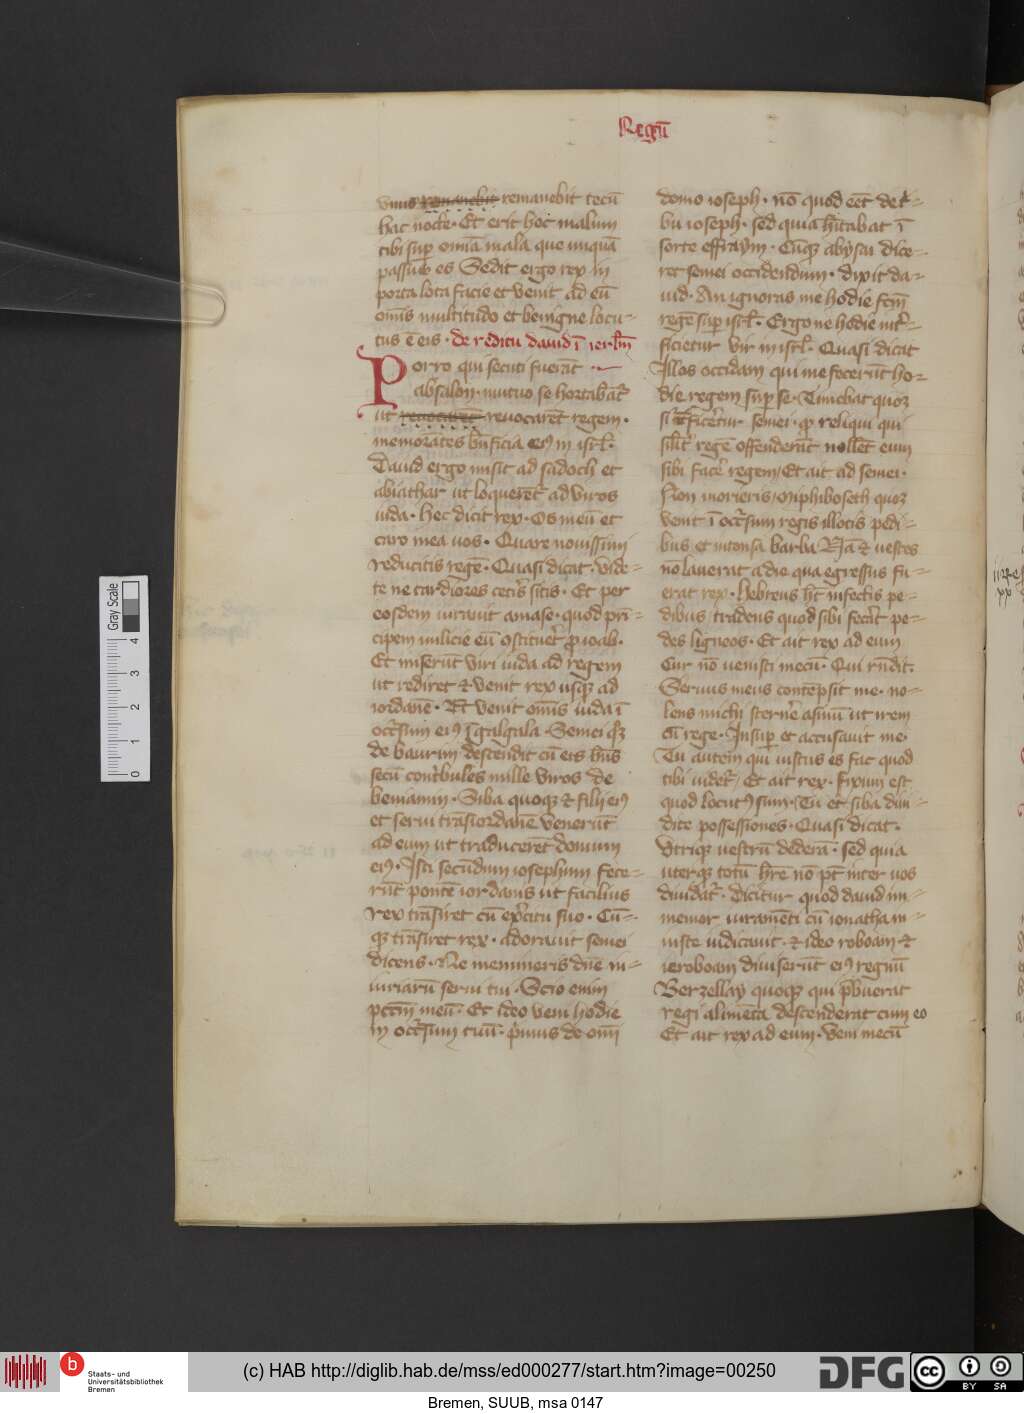 Regū
vnus remanebit remanebit tecū
hac nocte · Et erit hoc malum
tibi suꝑ omīa mala que unquā
passus es Sedit ergo rex in
porta lota facie et venit ad eū
om̄is multitudo et benigne locu-
tus ē eis · de reditu dauid ī ierl̄m
Porro qui secuti fuerāt
absalon · mutuo se hortabāt᷑
ut reuocaret reuocarēt regem ·
memorātes bn̄ficia eiꝰ in isrl̄ ·
Dauid ergo misit ad sadoch et
abiathar ut loquerēt᷑ ad viros
iuda · hec dicit rex · Os meū et
caro mea uos · Quare nouissimi
reducitis regē · Quasi dicat · vide-
te ne tardiores cet̄is sitis · Et per
eosdem iurauit amase · quod prī-
cipem milicie eū ꝯstituet̄ ꝓ ioab ·
Et miserūt viri iuda ad regem
ut rediret et venit rex usqꝫ ad
iordanē · Et venit om̄is iuda ī
occ̄sum eiꝰ ī galgala · Semei qꝫ
de baurim descendit cū eis hn̄s
secū contribules mille viros de
beniamin · Siba quoqꝫ et filij eiꝰ
et serui trāsiordanē venerūt
ad eum ut traducerēt domum
eiꝰ · Isti secundum iosephum fece-
rūt pontē iordanis ut facilius
rex trāsiret cū exc̄itu suo · Cū-
qꝫ trāsiret rex · adorauit semei
dicens · Ne memineris dn̄e in-
iuriarū serui tui · Scio enim
pctm̄ meū · Et ideo veni hodie
in occ̄sum tuū · p̄mus de om̄i
domo ioseph · nō quod eēt de t̄-
bu ioseph · sed quia hītabat ī
sorte effraym · Cūqꝫ abysai dice-
ret semei occidendum · dixit da-
uid · An ignoras me hodie fc̄m
regē suꝑ isrl̄ · Ergo ne hodie int̄-
ficietur vir in isrl̄ · Quasi dicat
Illos occidam qui me fecerūt ho-
die regem suꝑ se · Timebat quoqꝫ
si īt̄ficeretur semei · ꝙ reliqui qui
silit̄ regē offenderāt nollēt eum
sibi facē regem / Et ait ad semei ·
Non morieris / miphiboseth quoqꝫ
venit ī occ̄sum regis illotis pedi-
bus et intonsa barba Nā et uestes
nō lauerat a die qua egressus fu-
erat rex · hebreus ht̄ infectis pe-
dibus / tradens quod sibi fec̄at pe-
des ligneos · Et ait rex ad eum
Cur nō uenisti mecū · Qui rn̄dit ·
Seruus meus contēpsit me · no-
lens michi sternē asinū ut irem
cū rege · Insuꝑ et accusauit me ·
Tu autem qui iustus es fac quod
tibi uidet᷑ / Et ait rex · Fixum est
quod locutꝰ sum · Tu et siba diui-
dite possessiones · Quasi dicat ·
Vtriqꝫ uestrū dederā · sed quia
uterqꝫ totū hr̄e nō pt̄ inter uos
diuidat᷑ · Dicitur quod dauid im-
memor iuramēti cū ionatha in-
iuste iudicauit · et ideo roboam et
ieroboam diuiserūt eiꝰ regnū
Berzellay quoqꝫ qui p̄buerat
regi alimēta descenderat cum eo
Et ait rex ad eum · veni mecū
Gray Scale
4
3
2
1
0
b
Staats- und
Universitätsbibliothek
Bremen
(c) HAB http://diglib.hab.de/mss/ed000277/start.htm?image=00250
DFG
cc
BY
SA
Bremen, SUUB, msa 0147